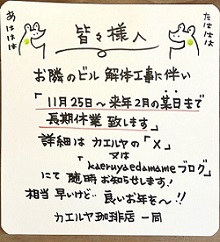 あはははは
たはははは
皆々様へ
お隣のビル 解体工事に伴い
「11月25日〜来年2月の某日まで
長期休業 致します」
詳細は カエルヤの「X」
又は
「kaeruyaedamameブログ」
にて 随時お知らせします!
相当 早いけど… 良いお年を〜!!
カエルヤ珈琲店 一同